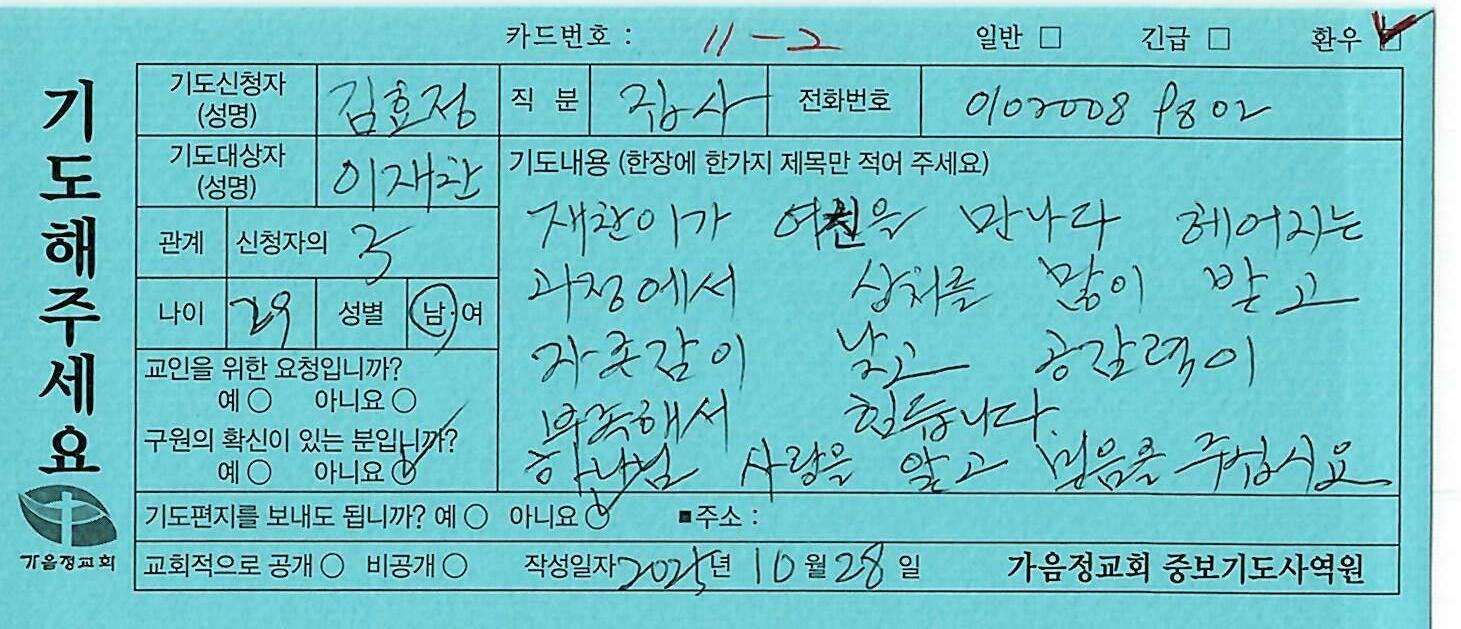 카드번호 : 11-2 일반 □ 긴급 □ 환우 ☑
기도해주세요
기도신청자 (성명) 김효정 직 분 집사 전화번호
기도대상자 (성명) 이재찬
기도내용 (한장에 한가지 제목만 적어 주세요)
재찬이가 여친을 만나다 헤어지는
과정에서 상처를 많이 받고
자존감이 낮고 공감력이
부족해서 힘듭니다.
하나님 사랑을 알고 믿음을 주십시요
관계 신청자의
나이 29 성별 남·여
교인을 위한 요청입니까?
예 ○ 아니요 ○
구원의 확신이 있는 분입니까?
예 ○ 아니요 ○
기도편지를 보내도 됩니까? 예 ○ 아니요 ○ ■주소 :
가음정교회
교회적으로 공개 ○ 비공개 ○ 작성일자 2025년 10월 28일 가음정교회 중보기도사역원